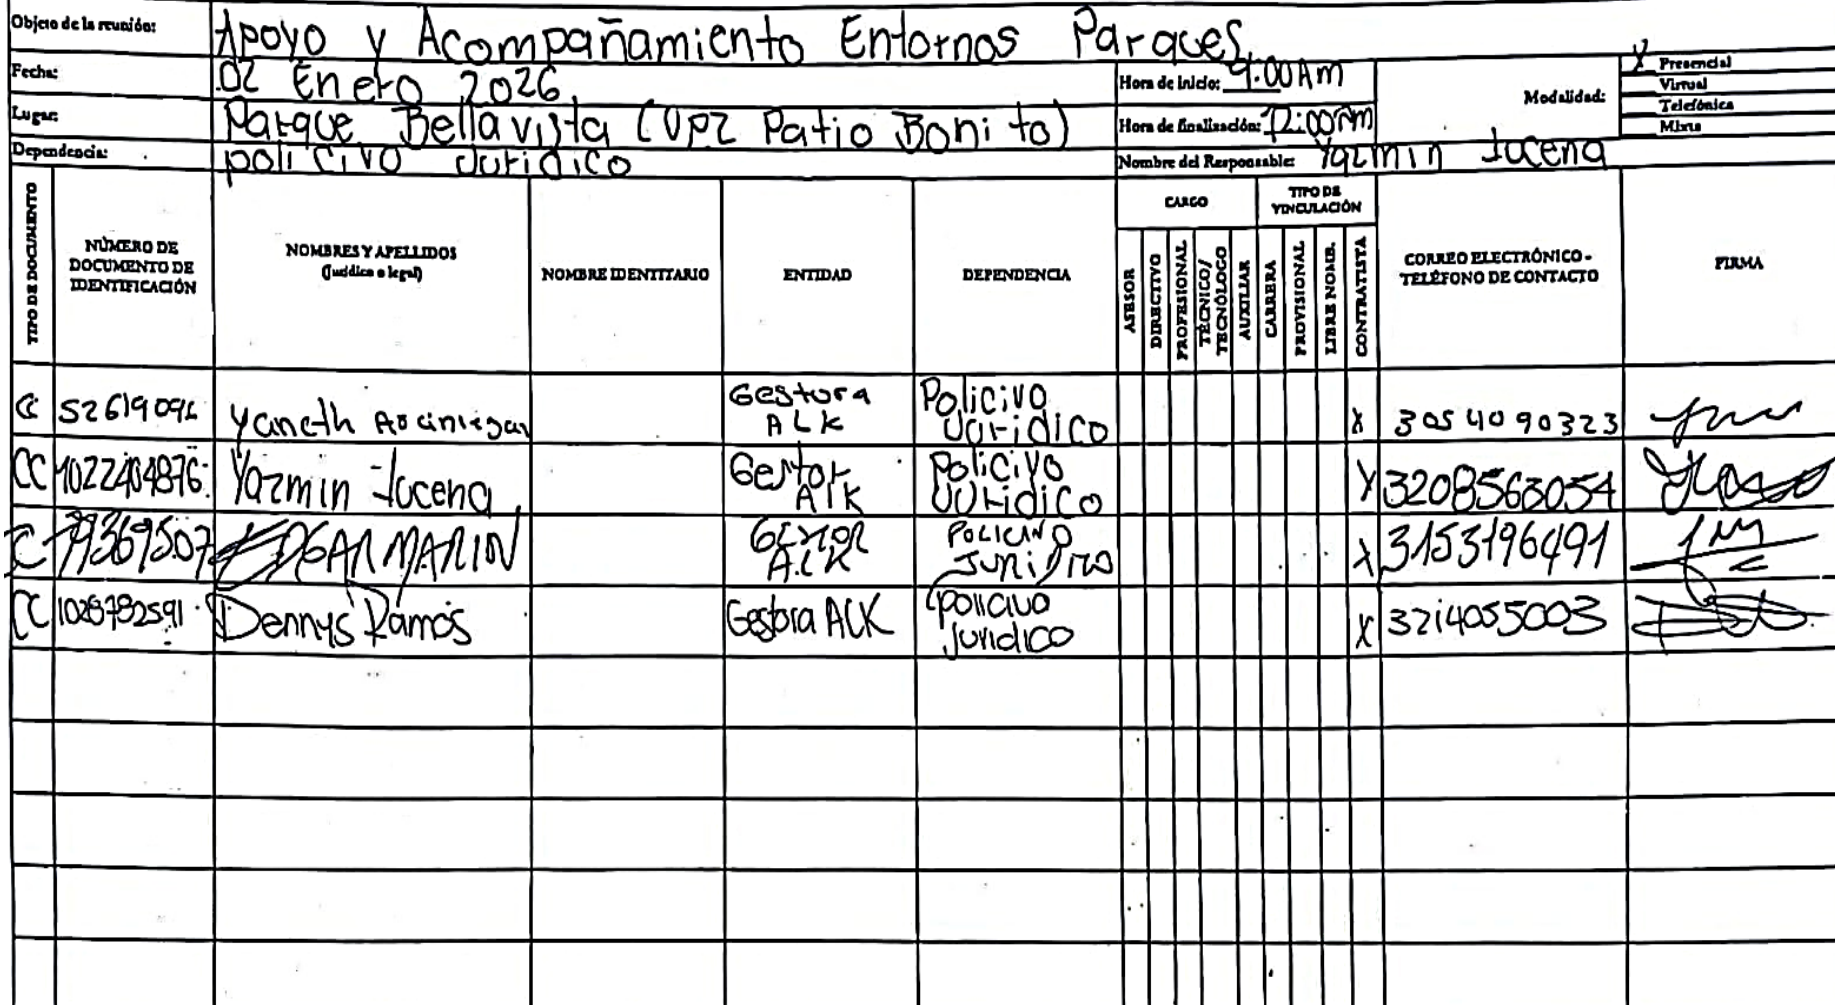 Objeto de la reunión: Apoyo y Acompañamiento Entornos Parques.
Fecha: 02 Enero 2026
Hora de inicio: 9:00 AM
Lugar: Parque Bellavista (UPZ Patio Bonito)
Hora de finalización: 12:00 PM
Modalidad:
X Presencial
Virtual
Telefónica
Mixta
Dependencia: policivo Juridico
Nombre del Responsable: Yazmin Lucena
TIPO DE DOCUMENTO
NÚMERO DE DOCUMENTO DE IDENTIFICACIÓN
NOMBRES Y APELLIDOS
(Jurídico o legal)
NOMBRE IDENTITARIO
ENTIDAD
DEPENDENCIA
CARGO
ASESOR
DIRECTIVO
PROFESIONAL
TÉCNICO/ TECNÓLOGO
AUXILIAR
TIPO DE VINCULACIÓN
CARRERA
PROVISIONAL
LIBRE NOMB.
CONTRATISTA
CORREO ELECTRÓNICO - TELÉFONO DE CONTACTO
FIRMA
CC Yaneth Arciniegas Gestora ALK Policivo Juridico X 3054090323
CC 1022404876 Yazmin Lucena Gestor ALK Policivo Juridico X 3208563054
CC 79369507 EDGAR MARIN GESTOR A.L.K POLICIVO JURIDICO X 3153196491
CC Dennys Ramos Gestora ALK policivo Juridico X 3214055003